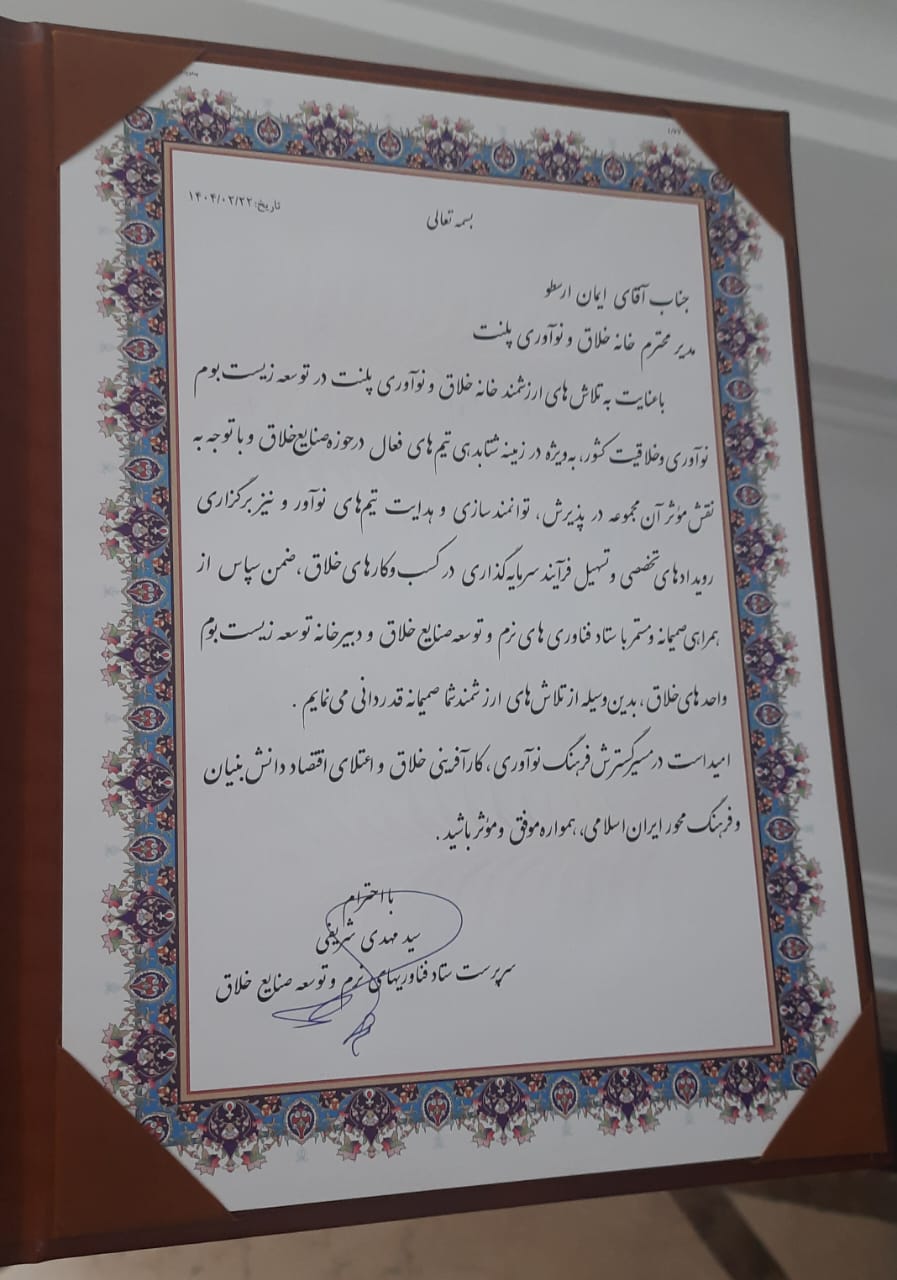 بسمه تعالی
تاریخ: ۱۴۰۴/۰۲/۲۲
جناب آقای ایمان ارسطو
مدیر محترم خانه خلاق و نوآوری پلنت
باعنایت به تلاش های ارزشمند خانه خلاق و نوآوری پلنت در توسعه زیست بوم
نوآوری و خلاقیت کشور، به ویژه در زمینه شتابدهی تیم های فعال در حوزه صنایع خلاق و با توجه به
نقش مؤثر آن مجموعه در پذیرش، توانمندسازی و هدایت تیم های نوآور و نیز برگزاری
رویدادهای تخصصی و تسهیل فرآیند سرمایه گذاری در کسب و کارهای خلاق، ضمن سپاس از
همراهی صمیمانه و مستمر با ستاد فناوری های نرم و توسعه صنایع خلاق و دبیرخانه توسعه زیست بوم
واحدهای خلاق، بدین وسیله از تلاش های ارزشمند شما صمیمانه قدردانی می نمایم .
امید است در مسیر گسترش فرهنگ نوآوری، کارآفرینی خلاق و اعتلای اقتصاد دانش بنیان
و فرهنگ محور ایران اسلامی، همواره موفق و مؤثر باشید .
با احترام
سید مهدی شریفی
سرپرست ستاد فناوریهای نرم و توسعه صنایع خلاق